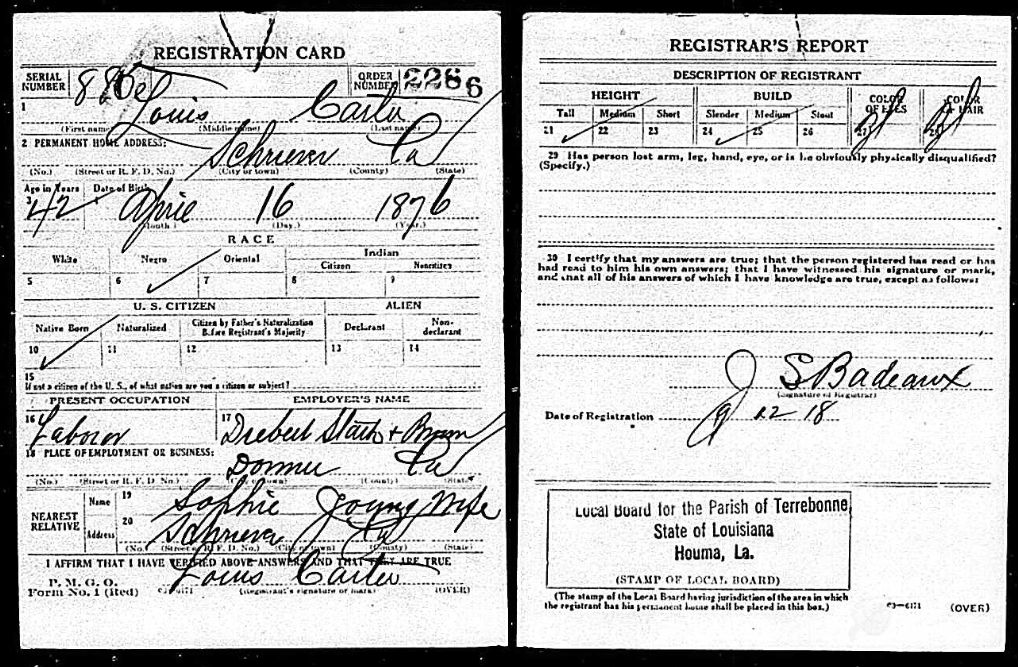 REGISTRATION CARD
SERIAL NUMBER ORDER NUMBER 2286 6
1 Louis Carter
(First name) (Middle name) (Last name)
2 PERMANENT HOME ADDRESS:
Schriever La
(No.) (Street or R. F. D. No.) (City or town) (County) (State)
Age in Years Date of Birth
3 42 4 April 16 1876
(Month) (Day.) (Year.)
RACE
White Negro Oriental Indian
Citizen Noncitizen
5 6 7 8 9
U. S. CITIZEN ALIEN
Native Born Naturalized Citizen by Father's Naturalization Before Registrant's Majority Declarant Non-declarant
10 11 12 13 14
15
If not a citizen of the U. S., of what nation are you a citizen or subject?
PRESENT OCCUPATION EMPLOYER'S NAME
16 Laborer 17 Dibert Stark + Brown
18 PLACE OF EMPLOYMENT OR BUSINESS:
Donner La
(No.) (Street or R. F. D. No.) (City or town) (County) (State)
NEAREST RELATIVE Name 19 Sophie Young Wife
Address 20 Schriever La
(No.) (Street or R. F. D. No.) (City or town) (County) (State)
I AFFIRM THAT I HAVE VERIFIED ABOVE ANSWERS AND THAT THEY ARE TRUE
Louis Carter
P. M. G. O.
Form No. 1 (Red) 03-6171 (Registrant's signature or mark) (OVER)
REGISTRAR'S REPORT
DESCRIPTION OF REGISTRANT
HEIGHT BUILD COLOR OF EYES COLOR OF HAIR
Tall Medium Short Slender Medium Stout
21 22 23 24 25 26 27 28
29 Has person lost arm, leg, hand, eye, or is he obviously physically disqualified?
(Specify.)
30 I certify that my answers are true; that the person registered has read or has
had read to him his own answers; that I have witnessed his signature or mark,
and that all of his answers of which I have knowledge are true, except as follows:
J S Badeaux
(Signature of Registrar)
Date of Registration 9 12 18
Local Board for the Parish of Terrebonne
State of Louisiana
Houma, La.
(STAMP OF LOCAL BOARD)
(The stamp of the Local Board having jurisdiction of the area in which
the registrant has his permanent home shall be placed in this box.) 03-6171 (OVER)